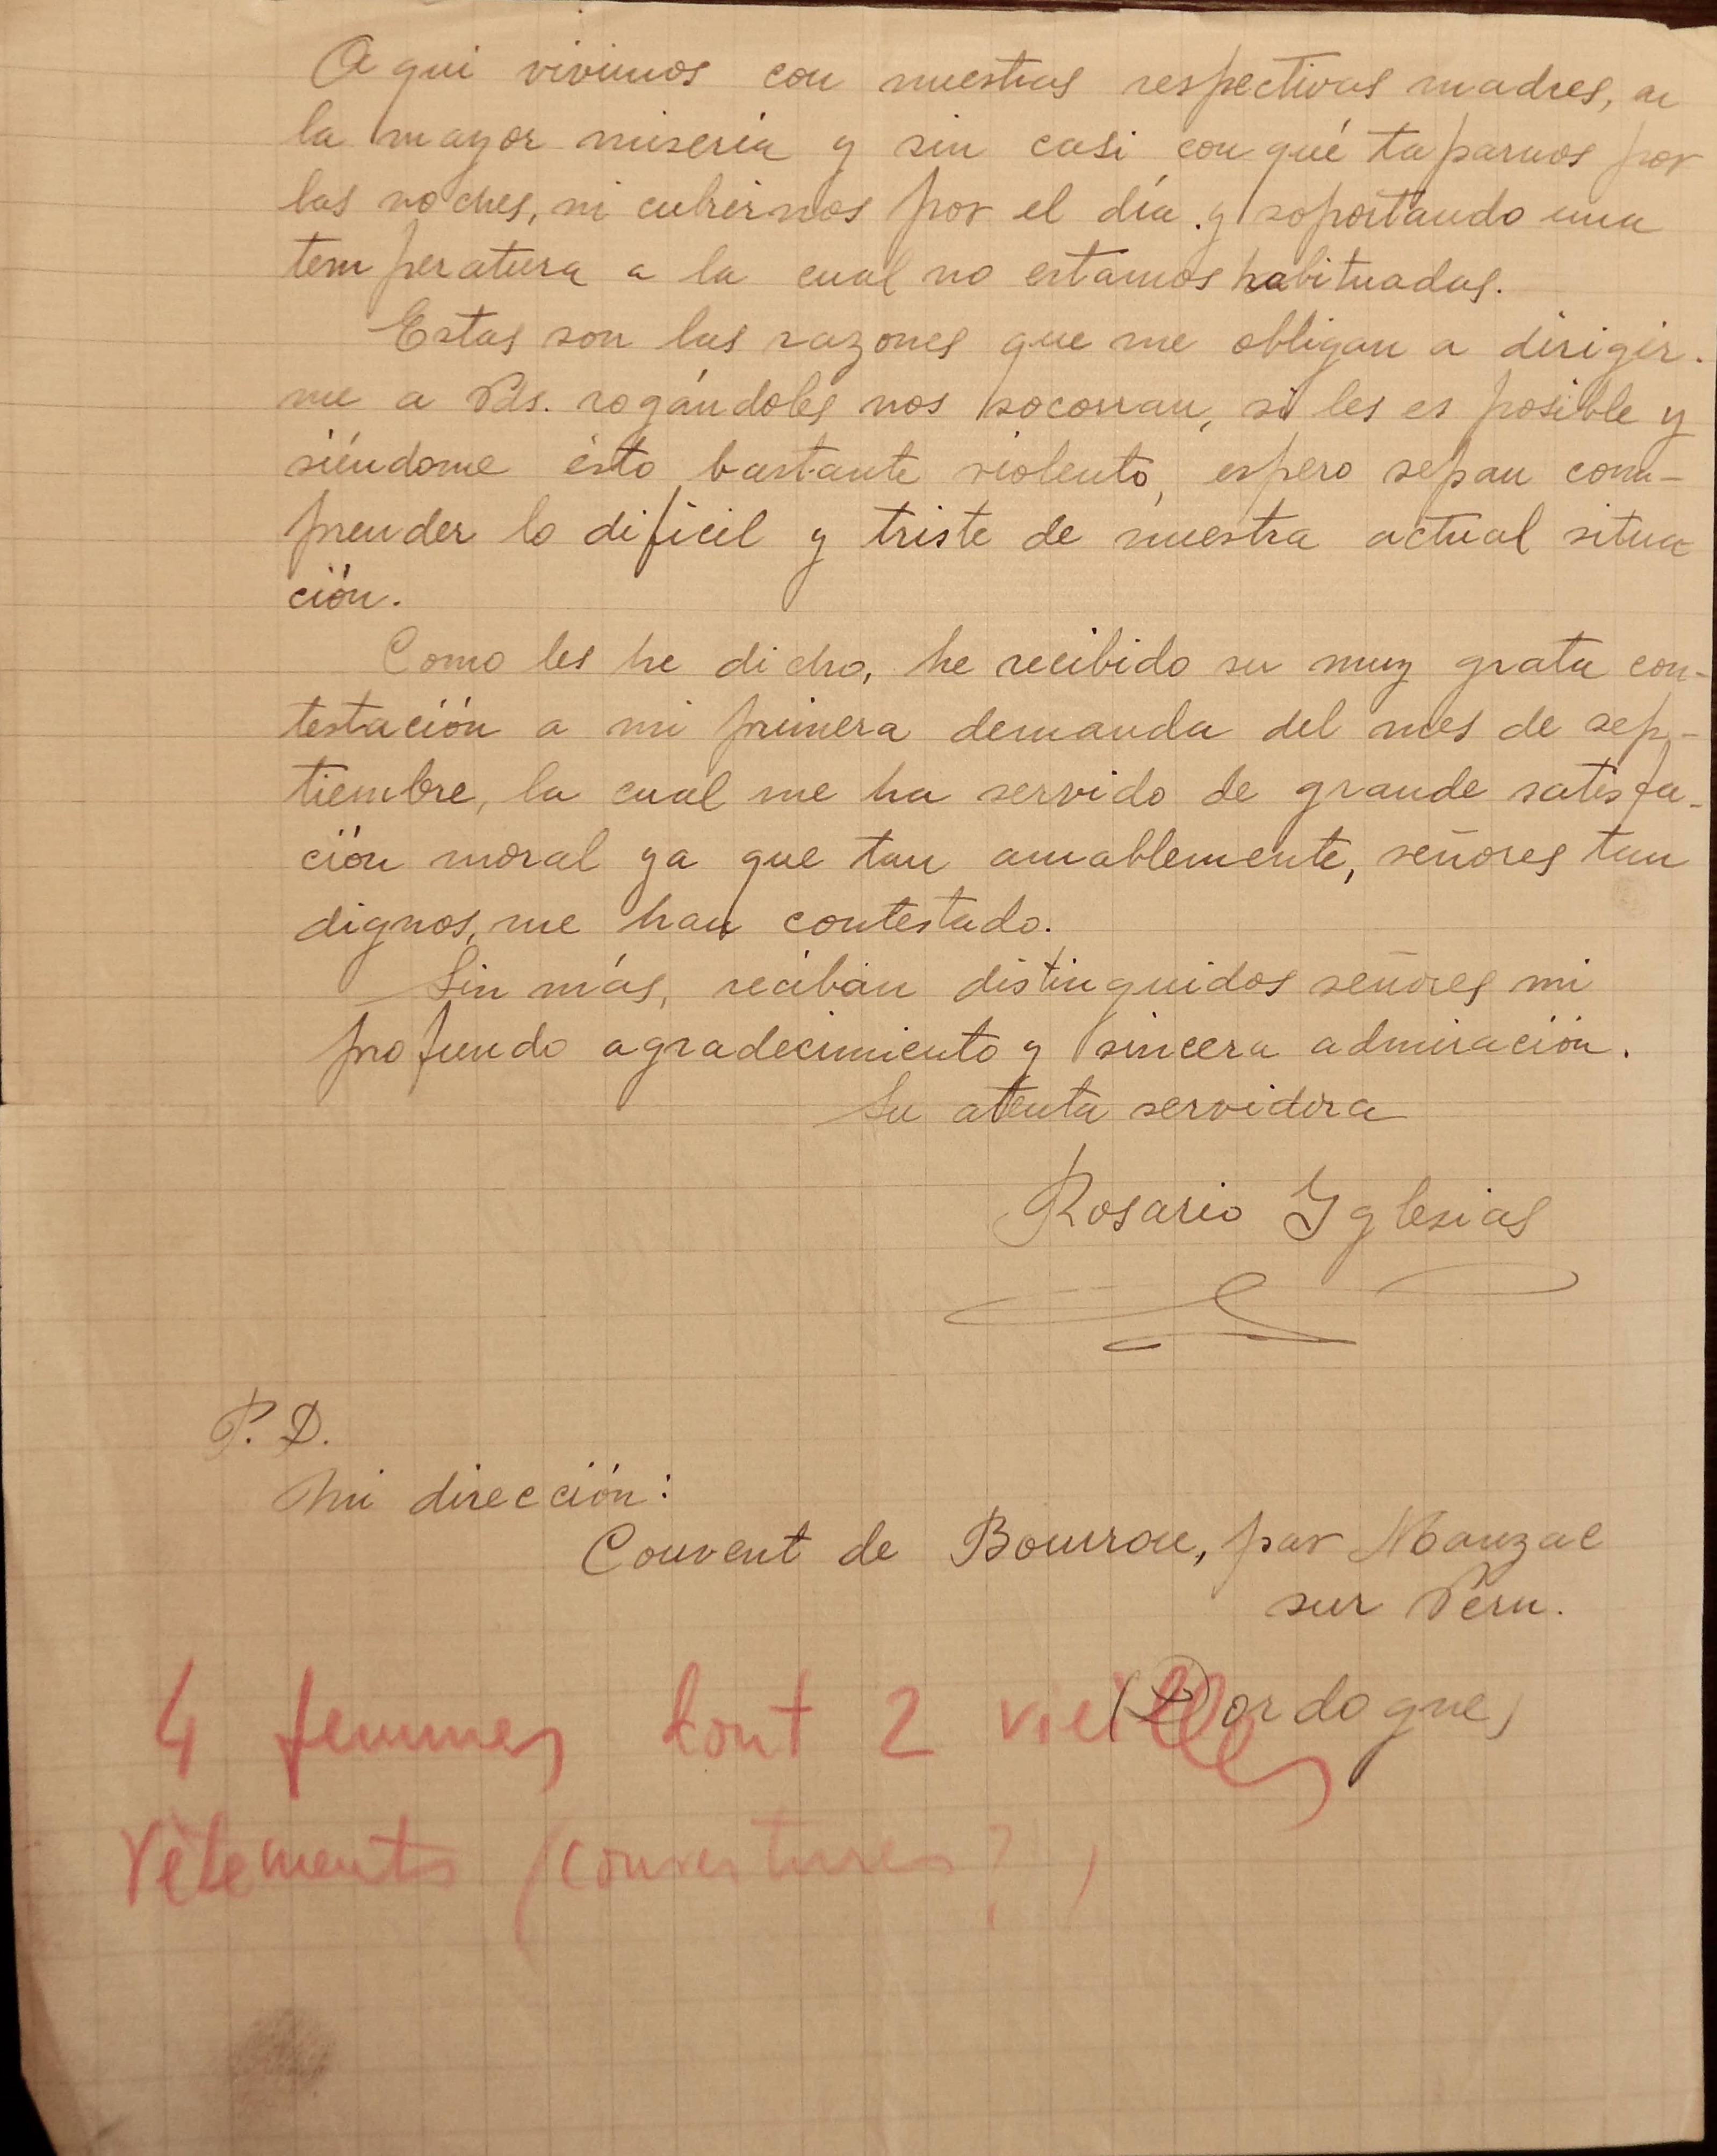 Aqui vivimos con nuestras respectivas madres, en
la mayor miseria y sin casi con qué taparnos por
las noches, ni cubrirnos por el día y soportando una
temperatura a la cual no estamos habituadas.
Estas son las razones que me obligan a dirigir-
me a Vds. rogándoles nos socorran, si les es posible y
siéndome ésto bastante violento, espero sepan com-
prender lo dificil y triste de nuestra actual situa
ción.
Como les he dicho, he recibido su muy grata con-
testación a mi primera demanda del mes de sep-
tiembre, la cual me ha servido de grande satisfa-
ción moral ya que tan amablemente, señores tan
dignos, me han contestado.
Sin más, reciban distinguidos señores mi
profundo agradecimiento y sincera admiración.
Su atenta servidora
Rosario Yglesias
P. D.
Mi dirección:
Couvent de Bourrou, par Manzac
sur Vern.
(Dordogne)
4 femmes dont 2 vieilles
Vêtements (couvertures ?)